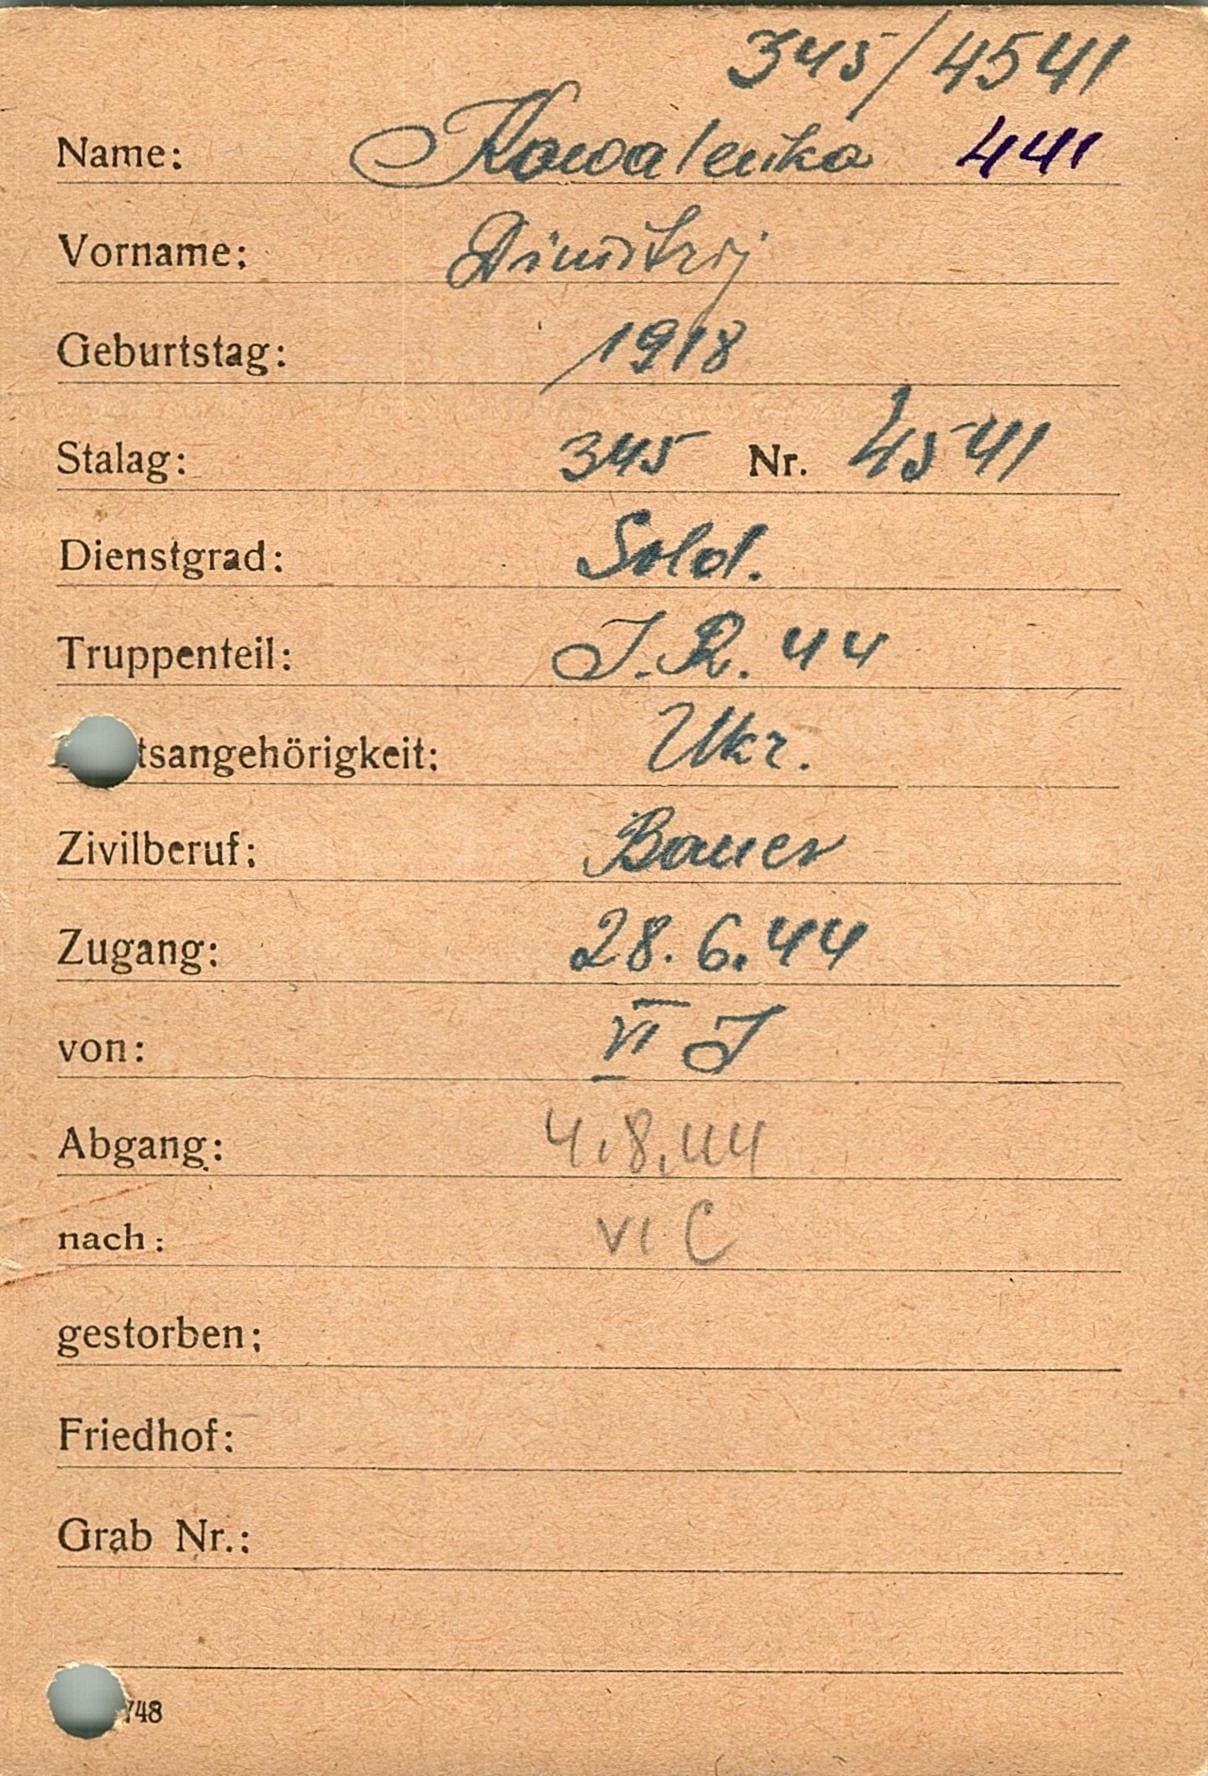 345/4541
Name: Kowalenko 441
Vorname: Dimitrij
Geburtstag: 1918
Stalag: 345 Nr. 4541
Dienstgrad: Sold.
Truppenteil: J.R. 44
tsangehörigkeit: Ukr.
Zivilberuf: Bauer
Zugang: 28.6.44
von: VI J
Abgang: 4.8.44
nach: VI C
gestorben:
Friedhof:
Grab Nr.:
/48